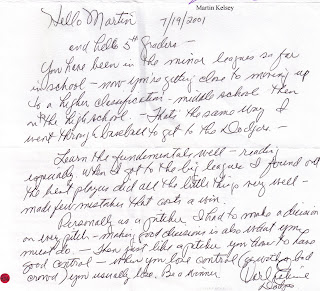 Martin Kelsey
Hello Martin 7/19/2001
and hello 5th Graders -
You have been in the minor leagues so far
in school - now you're getting close to moving up
to a higher classification - middle school then
on the high school - That's the same way I
went through baseball to get to the Dodgers -
Learn the fundamentals well - reading
especially When I got to the big leagues I found out
the best players did all the little things very well -
made few mistakes that costs a win.
Personally as a pitcher I had to make a decision
on every pitch - making good decisions is also what you
must do - Then just like a pitcher you have to have
good control - when you lose control (go with a bad
crowd) you usually lose. Be a winner.
Dodgers